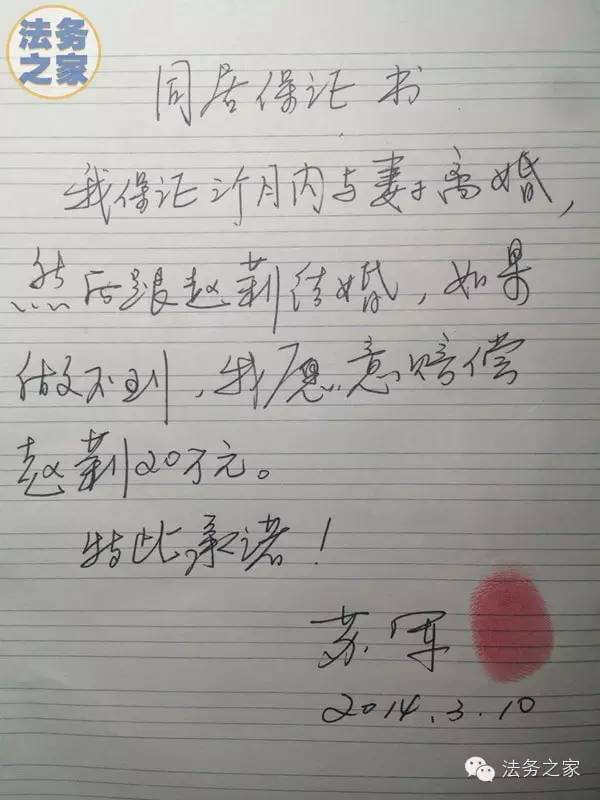 法务
之家
同居保证书
我保证3个月内与妻子离婚,
然后跟赵莉结婚,如果
做不到,我愿意赔偿
赵莉20万元。
特此承诺!
苏军
2014.3.10
法务之家